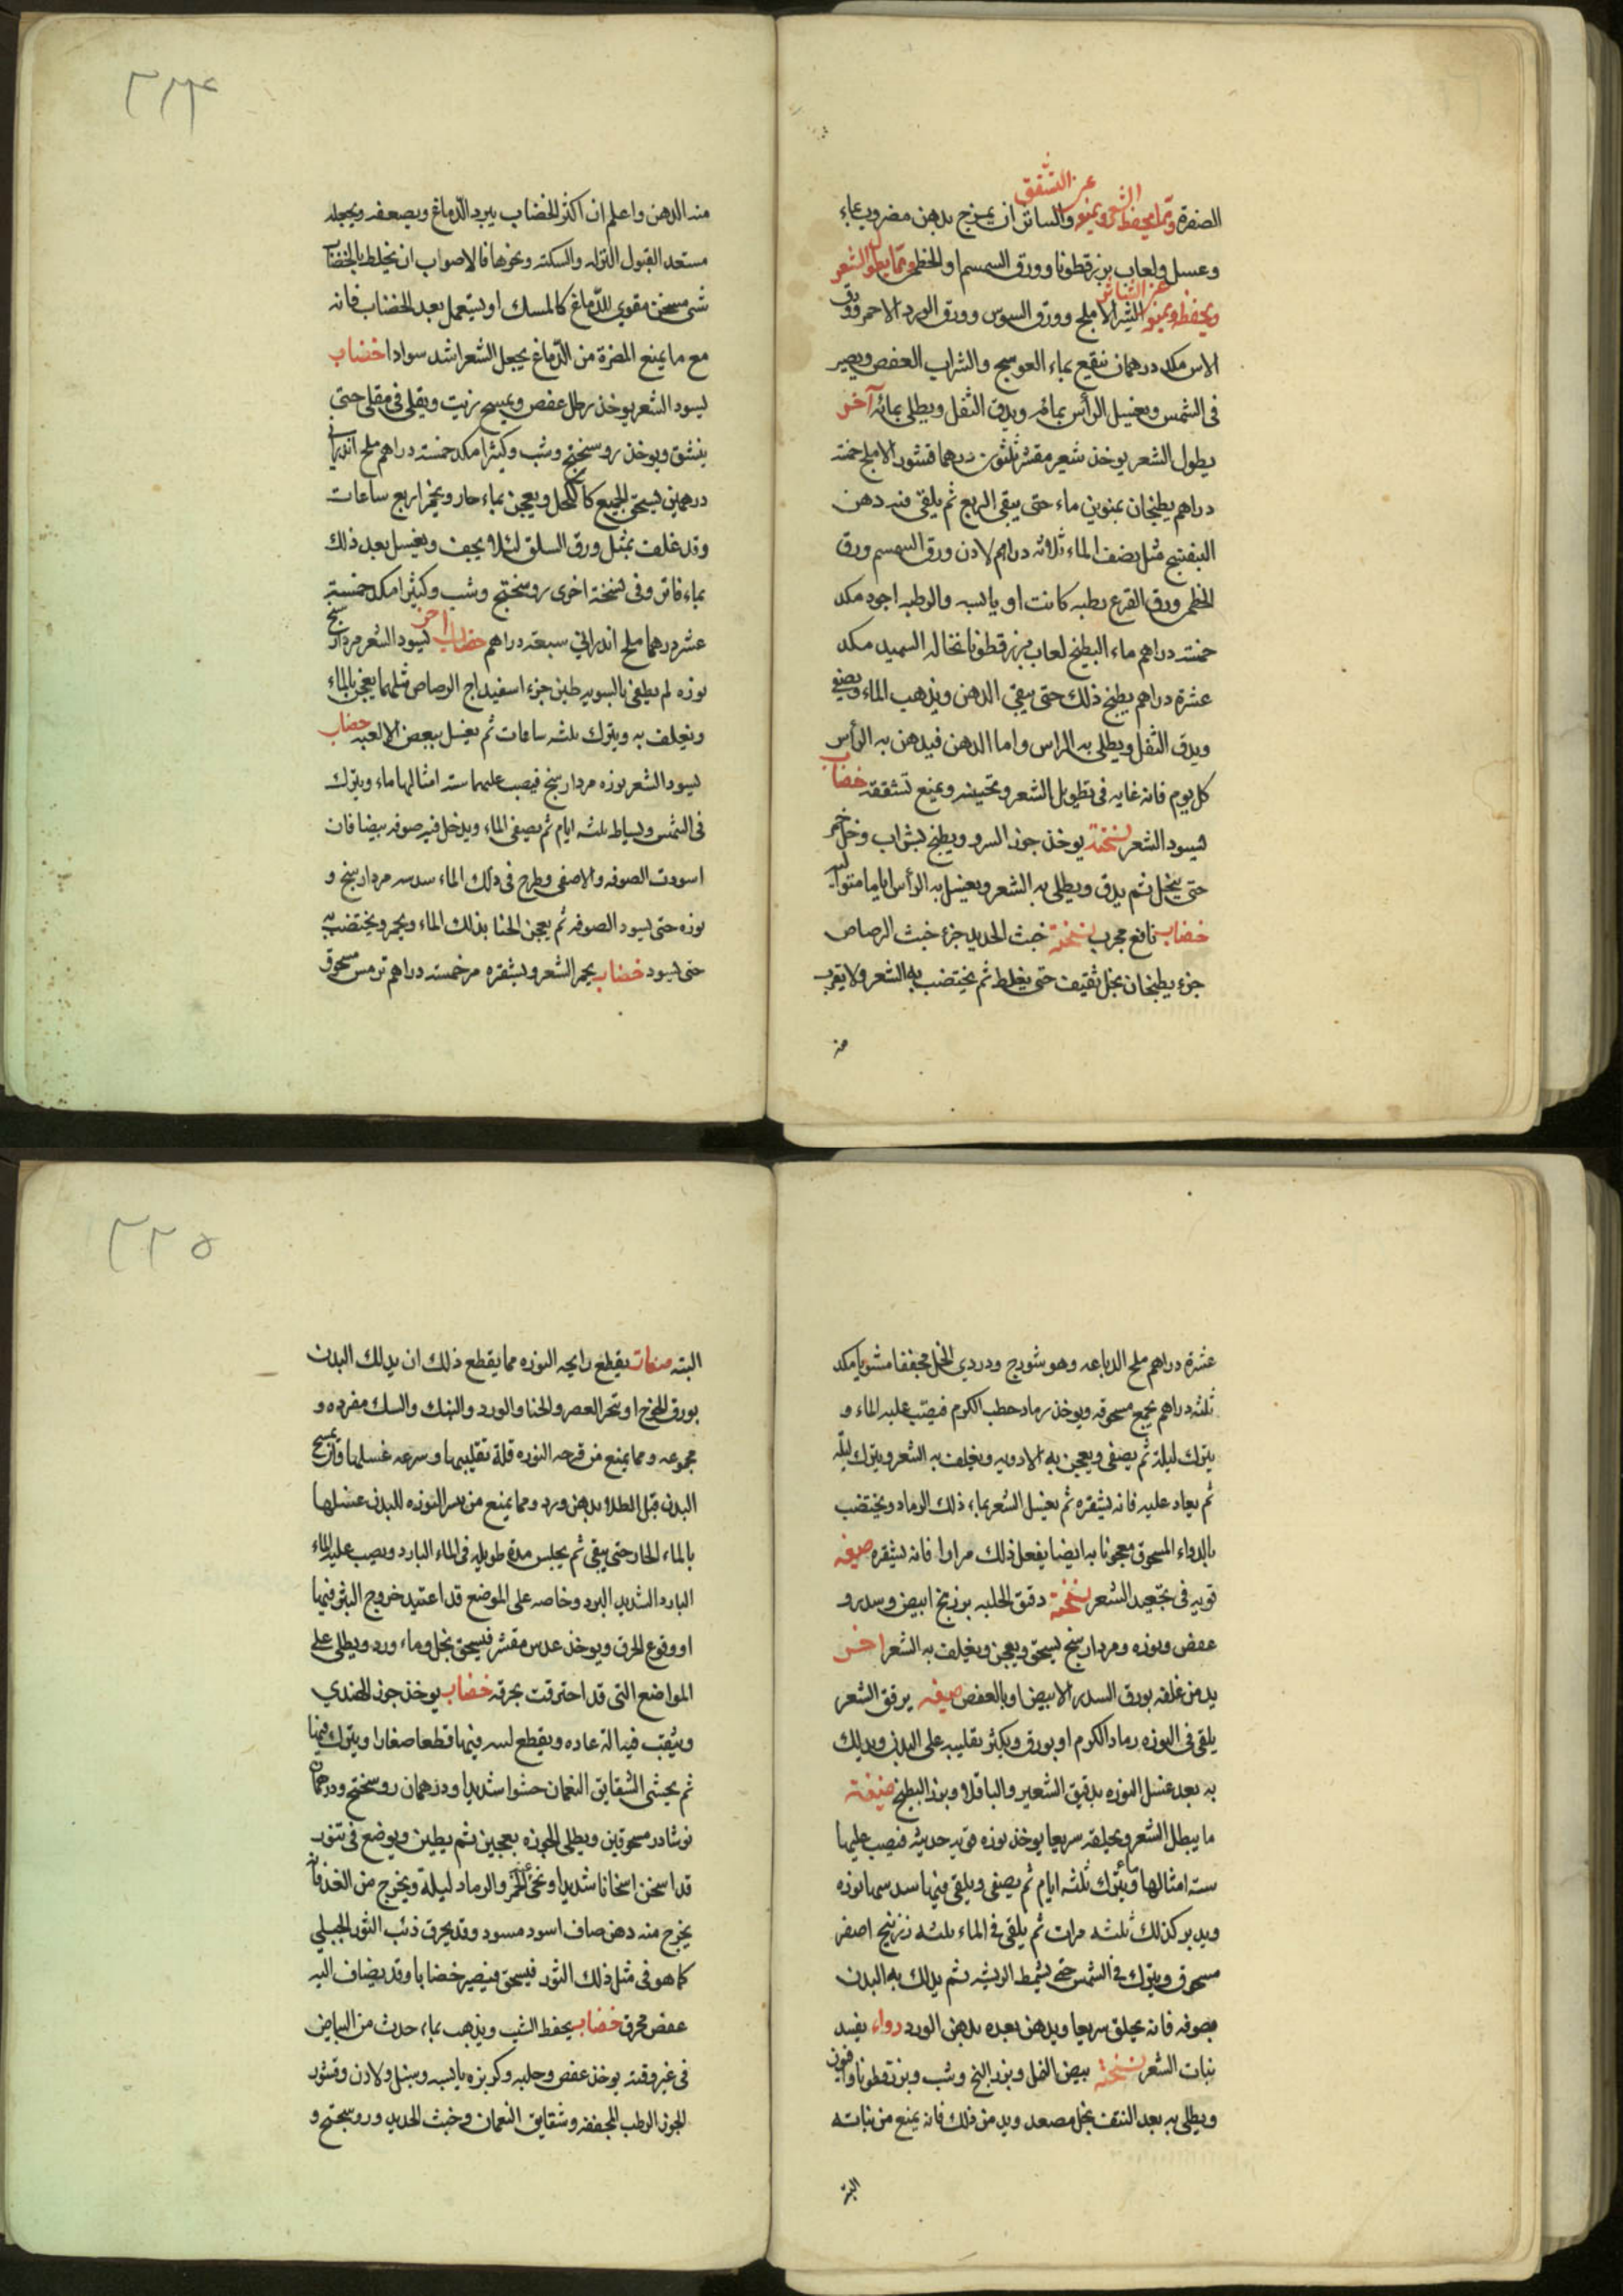 عن التشقق
الصفرة ومما يحفظ الشعر ويمنع والساتر ان يمزج بدهن مضروب بماء
وعسل ولعاب بزرقطونا وورق السمسم او الخطمى ومما يطول الشعر
عن التناثر
ويحفظه ويمنع الشيراملج وورق السوس وورق الورد الاحمر وورق
الاس مكد درهمان ينقع بماء العوسج والشراب العفص ويصير
فى الشمس ويغسل الرأس بمائه ويدق الثفل ويطلى بمائه آخر
يطول الشعر يوخذ شعير مقشر ثلثون درهما قشور الاملج خمسة
دراهم يطبخان بمنوين ماء حتى يبقى الربع ثم يلقى فيه دهن
البنفسج مثل نصف الماء ثلاثه دراهم لادن ورق السمسم ورق
الخطمى ورق القرع رطبه كانت او يابسه والرطبه اجود مكد
خمسة دراهم ماء البطيخ لعاب بزرقطونا نخاله السميد مكد
عشرة دراهم يطبخ ذلك حتى يبقى الدهن ويذهب الماء ويصفى
ويدق الثفل ويطلى به الراس واما الدهن فيدهن به الرأس
كل يوم فانه غايه فى تطويل الشعر وتحسينه ويمنع تشققه خضاب
ليسود الشعر نسخته يوخذ جوز السرو ويطبخ بشراب وخل خمر
حتى ينحل ثم يدق ويطلى به الشعر ويغسل به الرأس اياما متواليه
خضاب نافع مجرب نسخته خبث الحديد جزء خبث الرصاص
جزء يطبخان بخل ثقيف حتى يغلظ ثم يختضب به الشعر ولا يقرب
منه
٣٢٤
منه الدهن واعلم ان اكثر الخضاب يبرد الدماغ ويضعفه ويجعله
مستعدا لقبول النزله والسكته ونحوها فالاصواب ان يخلط بالخضاب
شى مسخن مقوى للدماغ كالمسك او يستعمل بعد الخضاب فانه
مع ما يمنع المضرة من الدماغ يجعل الشعر اشد سوادا خضاب
ليسود الشعر يوخذ رطل عفص ويمسح بزيت ويقلى فى مقلى حتى
ينشق ويوخذ روسختج وشب وكثيرا مكد خمسة دراهم ملح اندرانى
درهمين يسحق الجميع كالكحل ويعجن بماء حار ويخمر اربع ساعات
وقد غلف بمثل ورق السلق لئلا يجف ويغسل بعد ذلك
بماء فاتر وفى نسخة اخرى روسختج وشب وكثيرا مكد خمسة
عشر درهما ملح اندرانى سبعة دراهم خضاب اخر ليسود الشعر مردارسنج
نوره لم يطفى بالسويه طين جزء اسفيداج الرصاص مثلهما يعجن بالماء
ويغلف به ويترك ثلثه ساعات ثم يغسل ببعض الالعبه خضاب
ليسود الشعر نوره مردارسنج فيصب عليهما سته امثالها ماء ويترك
فى الشمس ويساط ثلثه ايام ثم يصفى الماء ويدخل فيه صوفه بيضا فان
اسودت الصوفه والا صفى وطرح فى ذلك الماء سدسه مردارسنج و
نوره حتى يسود الصوفه ثم يعجن الحنا بذلك الماء ويخمر ويختضب به
حتى يسود خضاب يحمر الشعر ويشقره مر خمسة دراهم ترمس مسحوق
عشرة دراهم ملح الدباغه وهو شورج ودردى الخل مجففا مشويا مكد
ثلثه دراهم يجمع مسحوقه ويوخذ رماد حطب الكرم فيصب عليه الماء و
يترك ليلة ثم يصفى ويعجن به الادويه ويغلف به الشعر ويترك ليله
ثم يعاد عليه فانه يشقره ثم يغسل الشعر بماء ذلك الرماد ويختضب
بالدواء المسحوق معجونا به ايضا يفعل ذلك مرارا فانه يشقره صيفه
قويه فى تجعيد الشعر نسخته دقيق الحلبه بزر بنج ابيض وسدر و
عفص ونوره ومردارسنج يسحق ويعجن ويغلف به الشعر اخر
يدمن غلفه بورق السدر الابيض او بالعفص صيفه يرقق الشعر
يلقى فى النوره رماد الكرم او بورق ويكثر تقليبه على البدن ويدلك
به بعد غسل النوره بدقيق الشعير والباقلا وبزر البطيخ صيفة
ما يبطل الشعر ويحلقه سريعا يوخذ نوره قويه حديثه فيصب عليها
سته امثالها ماء ويترك ثلثه ايام ثم يصفى ويلقى فيها سدسها نوره
ويدبر كذلك ثلثه مرات ثم يلقى فى الماء ثلثه زرنيخ اصفر
مسحوق ويترك فى الشمس حتى يسمط الريشه ثم يدلك به البدن
بصوفه فانه يحلق سريعا ويدهن بعده بدهن الورد دواء يفسد
نبات الشعر نسخته بيض النمل وبزر البنج وشب وبزرقطونا وافيون
ويطلى به بعد النتف بخل مصعد ويدمن ذلك فانه يمنع من نباته
البته
٣٢٥
البته صفات يقطع رايحه النوره مما يقطع ذلك ان يدلك البدن
بورق الخوخ او بثجر العصفر والحنا والورد والسك مفرده و
مجموعه ومما يمنع من قرحه النوره قلة تقليبها وسرعه غسلها وان يمسح
البدن قبل الطلا بدهن ورد ومما يمنع من بثر النوره للبدن غسلها
بالماء الحار حتى ينقى ثم يجلس مدة طويله فى الماء البارد ويصب عليه الماء
البارد الشديد البرد وخاصه على الموضع قد اعتيد خروج البثر فيها
او وقوع الحرق ويوخذ عدس مقشر فيسحق بخل وماء ورد ويطلى على
المواضع التى قد احترقت بحرقه خضاب يوخذ جوز الهندى
ويثقب فيه ثقبه عاده ويقطع لبه فيها قطعا صغارا ويترك فيها
ثم يحشى الشقايق النعمان حشوا شديدا ودرهمان روسختج ودرهمان
نوشادر مسحوقين ويطلى الجوزه بعجين ثم يطين ويوضع فى تنور
قد اسخن اسخانا شديدا ونحى الجمر والرماد ليلة ويخرج من الغد فانه
يخرج منه دهن صاف اسود مسود وقد يحرق ذنب الثور الجبلى
كما هو فى مثل ذلك الثور فيسحق فيصير خضابا وقد يضاف اليه
عفص محرق خضاب يحفظ الشيب ويذهب بماء حدث من البياض
فى غير وقته يوخذ عفص وحلبه وكزبزه يابسه وسنبل ولادن وقشور
الجوز الرطب المجففه وشقايق النعمان وخبث الحديد وروسختج و